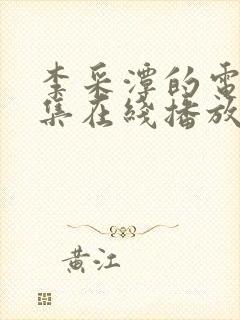 李采潭的電
集在綫播放
黄江